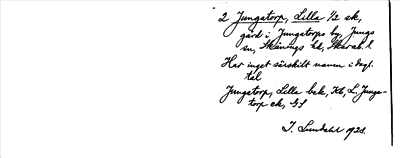 2 Jungatorp, Lilla 1/2 ek,
gård i Jungatorps by, Jungs
sn, Skånings hd, Skarab. l
Har inget särskilt namn i dagl.
tal
Jungatorp, Lilla bek, Kb, L. Junga-
torp ek, GS
I. Lundahl 1928.